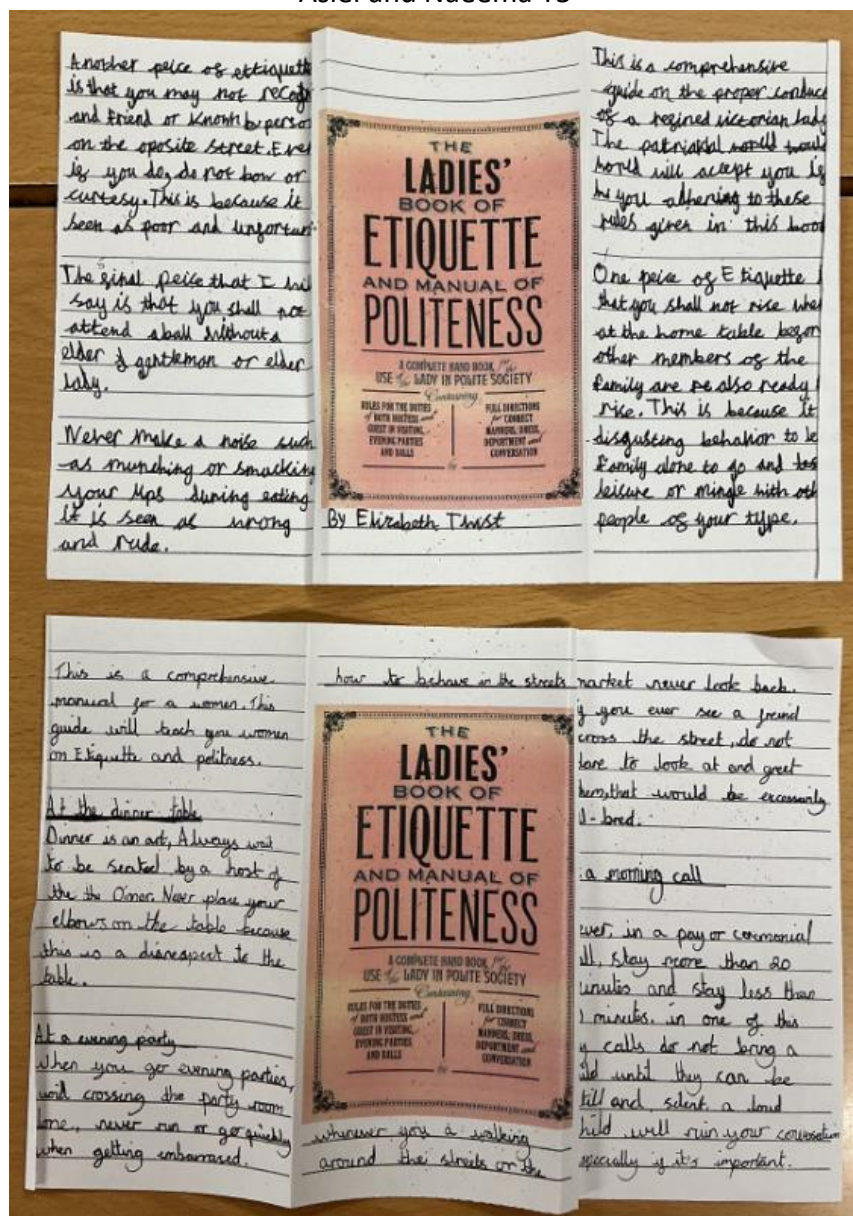 Another peice of ettiquette
is that you may not recog
and Friend or Known person
on the oposite street. Even
if you do, do not bow or
curtesy. This is because it
seen as poor and unfortun
The final peise that I wil
say is that you shall not
attend a ball without a
elder gentleman or elder
lady.
Never make a noise such
as munching or smacking
your lips during eating
it is seen as wrong
and rude.
THE
LADIES'
BOOK OF
ETIQUETTE
AND MANUAL OF
POLITENESS
A COMPLETE HAND BOOK for the
USE of the LADY IN POLITE SOCIETY
Containing
RULES FOR THE DUTIES
of BOTH HOSTESS and
GUEST IN VISITING,
EVENING PARTIES
AND BALLS
FULL DIRECTIONS
for CORRECT
MANNERS, DRESS,
DEPORTMENT and
CONVERSATION
by
By Elizabeth Thist
This is a comprehensive
guide on the proper conduct
of a refined victorian lady
The patriarkal world would
world will accept you if
by you adhering to these
rules given in this book
One peice of Etiquette
that you shall not rise whe
at the home table befor
other members of the
family are also ready
rise. This is because it
disgusting behavior to le
family alone to go and
leisure or mingle with oth
people of your type.
This is a comprehensive
manual for a women. This
guide will teach you women
on Etiquette and politness.
At the dinner table
Dinner is an art, Always wait
to be seated by a host of
the the Diner. Never place your
elbows on the table because
this is a disrespect to the
table.
At a evening party
When you go evening parties,
void crossing the party room
lone, never run or go quickly
when getting embarrased.
how to behave in the streets
THE
LADIES'
BOOK OF
ETIQUETTE
AND MANUAL OF
POLITENESS
A COMPLETE HAND BOOK for the
USE of the LADY IN POLITE SOCIETY
Containing
RULES FOR THE DUTIES
of BOTH HOSTESS and
GUEST IN VISITING,
EVENING PARTIES
AND BALLS
FULL DIRECTIONS
for CORRECT
MANNERS, DRESS,
DEPORTMENT and
CONVERSATION
by
whenever you a walking
around the streets or the
market never look back.
if you ever see a freind
cross the street, do not
dare to look at and greet
hem, that would be excessivly
l-bred.
a morning call
ever, in a pay or cermonial
ll, stay more than 20
minutes and stay less than
minutes. in one of this
y calls do not bring a
ild until they can be
till and silent. a loud
hild will ruin your couvsation
specially if it's important.